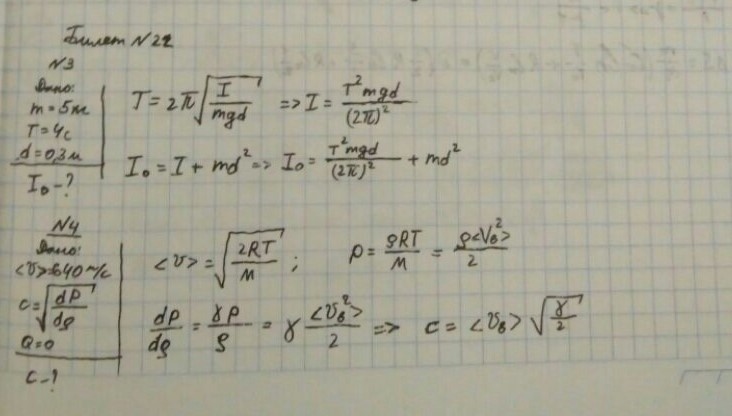 Билет N22
N3
Дано:
m = 5 кг
T = 4 c
d = 0,3 м
I₀ - ?
T = 2π√(I/mgd) => I = T²mgd/(2π)²
I₀ = I + md² => I₀ = T²mgd/(2π)² + md²
N4
Дано:
<v> = 640 м/с
c = √(dP/dρ)
Q = 0
c - ?
<v> = √(2RT/M) ; p = ρRT/M = ρ<v_в²>/2
dP/dρ = γp/ρ = γ<v_в²>/2 => c = <v_в>√(γ/2)